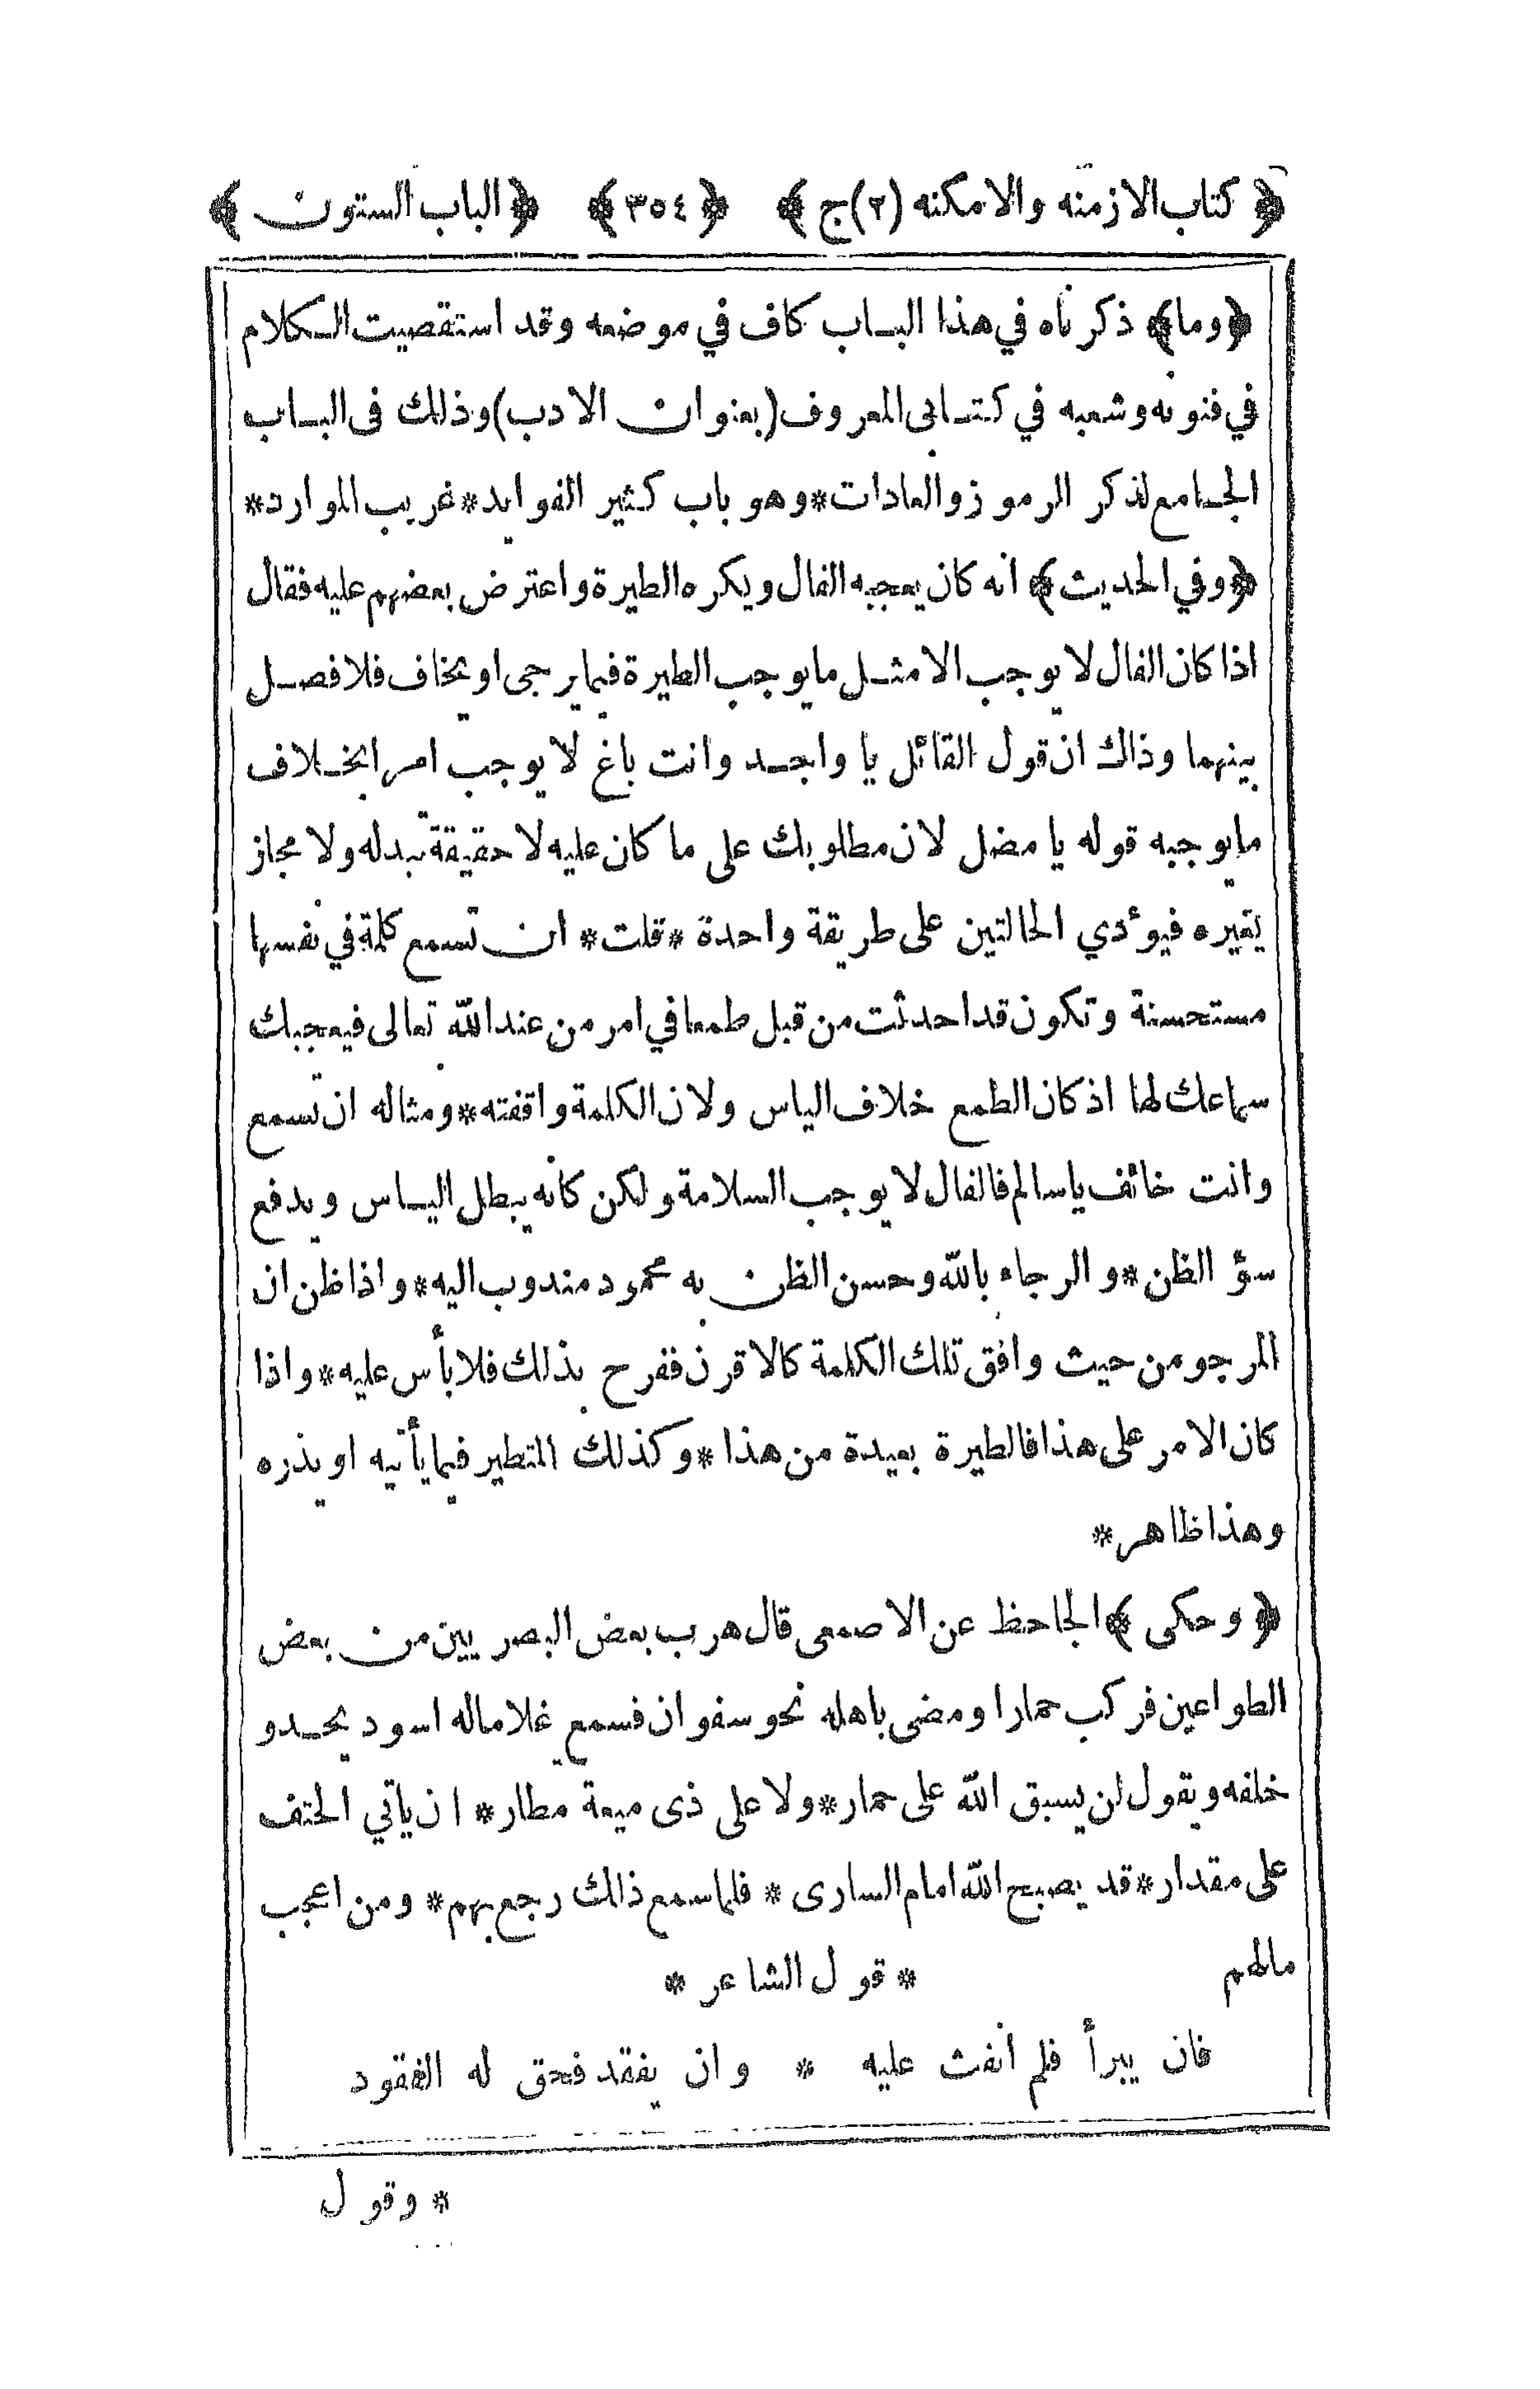 ﴿ كتاب الازمنه والامكنه (٢) ج ﴾ ﴿ ٣٥٤ ﴾ ﴿ الباب الستون ﴾
﴿ وما ﴾ ذكرناه في هذا الباب كاف في موضعه وقد استقصيت الكلام
في فنونه وشعبه في كتابى المعروف (بعنوان الادب) وذلك فى الباب
الجامع لذكر الرموز والعادات * وهو باب كثير الفوايد * غريب الموارد *
﴿ وفي الحديث ﴾ انه كان يعجبه الفال ويكره الطيرة واعترض بعضهم عليه فقال
اذا كان الفال لا يوجب الا مثل ما يوجب الطيرة فيما يرجى او يخاف فلا فصل
بينهما وذاك ان قول القائل يا واجد وانت باغ لا يوجب امرا بخلاف
ما يوجبه قوله يا مضل لان مطلوبك على ما كان عليه لا حقيقة تبدله ولا مجاز
يغيره فيؤدي الحالتين على طريقة واحدة * قلت * ان تسمع كلمة في نفسها
مستحسنة وتكون قد احدثت من قبل طمعا في امر من عند الله تعالى فيعجبك
سماعك لها اذ كان الطمع خلاف الياس ولان الكلمة وافقته * ومثاله ان تسمع
وانت خائف يا سالم فالفال لا يوجب السلامة ولكن كانه يبطل الياس ويدفع
سؤ الظن * والرجاء بالله وحسن الظن به محمود مندوب اليه * واذا ظن ان
المرجو من حيث وافق تلك الكلمة كالاقرن ففرح بذلك فلا بأس عليه * واذا
كان الامر على هذا فالطيرة بعيدة من هذا * وكذلك المتطير فيما يأتيه او يذره
وهذا ظاهر *
﴿ وحكى ﴾ الجاحظ عن الاصمعى قال هرب بعض البصريين من بعض
الطواعين فركب حمارا ومضى باهله نحو سفوان فسمع غلاما له اسود يحدو
خلفه ويقول لن يسبق الله على حمار * ولا على ذى ميعة مطار * ان ياتي الحتف
على مقدار * قد يصبح الله امام السارى * فلما سمع ذلك رجع بهم * ومن اعجب
مالهم * قول الشاعر *
فان يبرأ فلم أنفث عليه * وان يفقد فحق له الفقود
* وقول